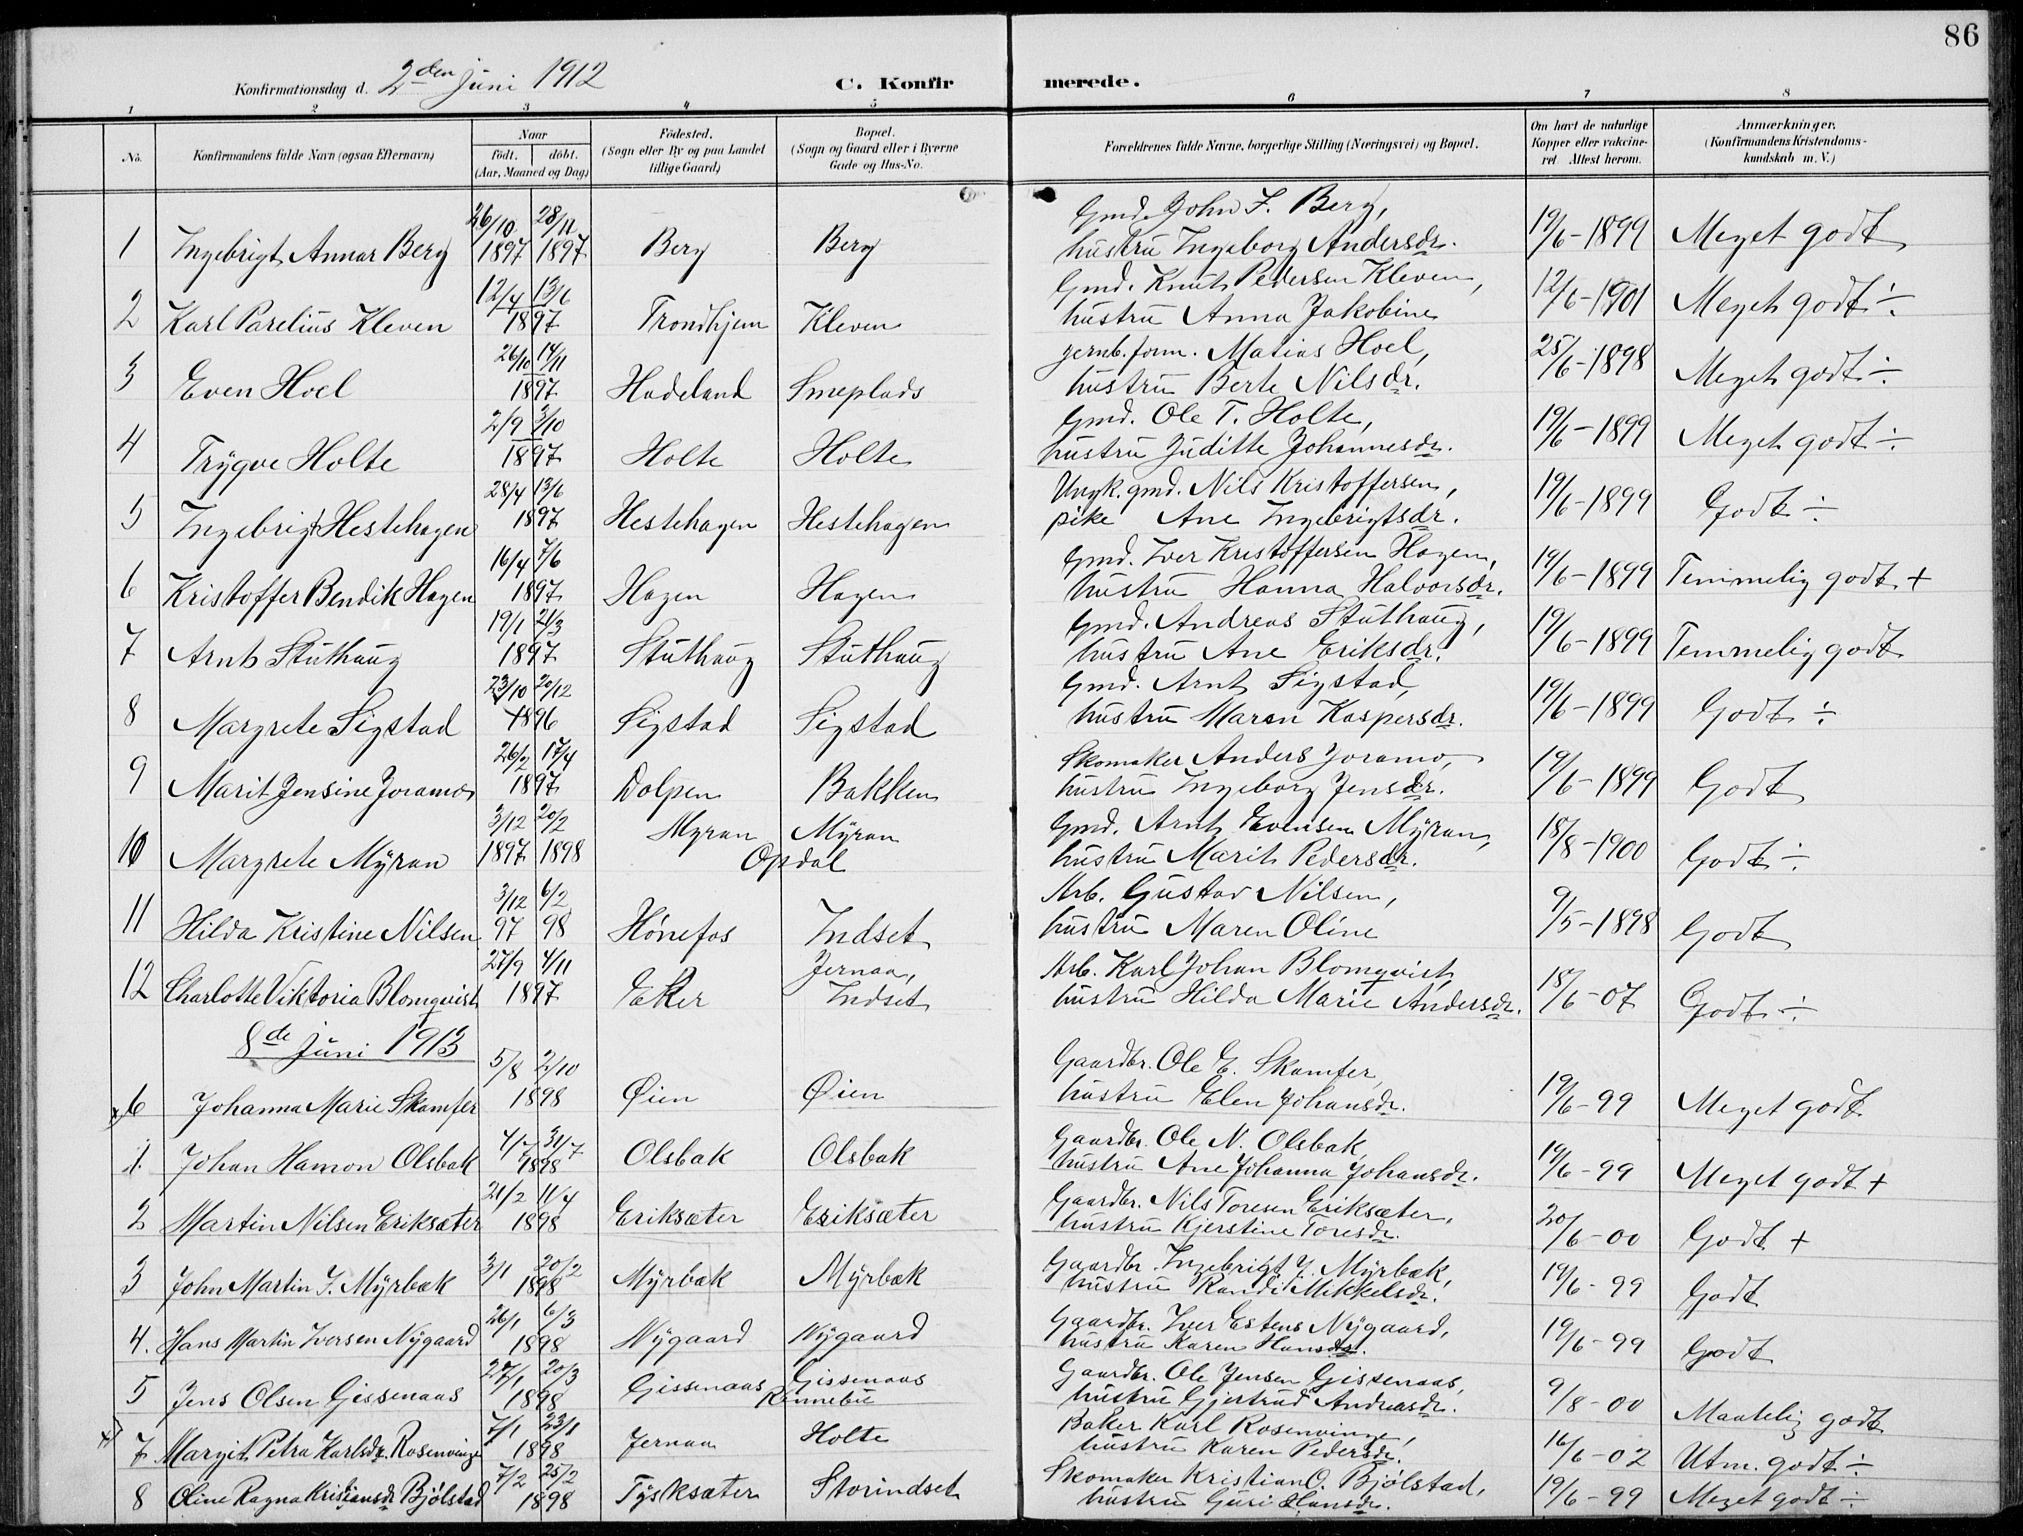 86
Konfirmationsdag d. 2den Juni 1912 C. Konfirmerede.
1 2 3 4 5 6 7 8
No. Konfirmandens fulde Navn (ogsaa Efternavn) Naar født. døbt. (Aar, Maaned og Dag) Fødested. (Sogn eller By og paa Landet tillige Gaard) Bopæl. (Sogn og Gaard eller i Byerne Gade og Hus-No. Forældrenes fulde Navne, borgerlige Stilling (Næringsvei) og Bopæl. Om havt de naturlige Kopper eller vakcineret Attest herom. Anmærkninger. (Konfirmandens Kristendomskundskab m. V.)
1 Ingebrigt Annar Berg 26/10 1897 28/11 1897 Berg Berg Gmd. John I. Berg, hustru Ingeborg Andersdr. 19/6-1899 Meget godt
2 Karl Parelius Kleven 12/4 13/6 1897 Trondhjem Kleven Gmd. Knut Pedersen Kleven, hustru Anna Jakobine 12/6-1901 Meget godt ÷
3 Even Hoel 26/10 14/11 1897 Hadeland Smeplads jernb.form. Matias Hoel, hustru Berte Nilsdr. 25/6-1898 Meget godt ÷
4 Trygve Holte 2/9 3/10 1897 Holte Holte Gmd. Ole T. Holte, hustru Juditte Johannesdr. 19/6-1899 Meget godt ÷
5 Ingebrigt Hestehagen 28/4 13/6 1897 Hestehagen Hestehagen Ungk. gmd. Nils Kristoffersen, pike Ane Ingebrigtsdr. 19/6-1899 Godt ÷
6 Kristoffer Bendik Hagen 16/4 7/6 1897 Hagen Hagen Gmd. Iver Kristoffersen Hagen, hustru Hanna Halvorsdr. 19/6-1899 Temmelig godt +
7 Arnt Stuthaug 19/1 21/3 1897 Stuthaug Stuthaug Gmd. Andreas Stuthaug, hustru Ane Eriksdr. 19/6-1899 Temmelig godt
8 Margrete Sigstad 23/10 20/12 1896 Sigstad Sigstad Gmd. Arnt Sigstad, hustru Maren Kaspersdr. 19/6-1899 Godt ÷
9 Marit Jensine Joramo 26/2 17/4 1897 Dolpen Bakken Skomaker Anders Joramo, hustru Ingeborg Jensdr. 19/6-1899 Godt
10 Margrete Myran 3/12 1897 20/2 1898 Myran Myran Opdal Gmd. Arnt Evensen Myran, hustru Marit Pedersdr. 18/8-1900 Godt ÷
11 Hilda Kristine Nilsen 3/12 97 6/2 98 Hønefos Indset Arb. Gustav Nilsen, hustru Maren Oline 9/5-1898 Godt
12 Charlotte Viktoria Blomqvist 27/9 4/11 1897 Eker Jernaa, Indset Arb. Karl Johan Blomqvist, hustru Hilda Marie Andersdr. 18/6-07 Godt ÷
8de Juni 1913
6 Johanna Marie Skamfer 5/8 2/10 1898 Øien Øien Gaardbr. Ole E. Skamfer, hustru Elen Johansdr. 19/6-99 Meget godt
1 Johan Hamon Olsbak 4/7 31/7 1898 Olsbak Olsbak Gaardbr. Ole N. Olsbak, hustru Ane Johanna Johansdr. 19/6-99 Meget godt +
2 Martin Nilsen Eriksæter 21/2 11/4 1898 Eriksæter Eriksæter Gaardbr. Nils Toresen Eriksæter, hustru Kjerstine Toresdr. 20/6-00 Godt +
3 John Martin I. Myrbæk 3/1 20/2 1898 Myrbæk Myrbæk Gaardbr. Ingebrigt J. Myrbæk, hustru Randi Mikkelsdr. 19/6-99 Godt
4. Hans Martin Iversen Nygaard 26/1 6/3 1898 Nygaard Nygaard Gaardbr. Iver Estens Nygaard, hustru Karen Hansdr. 19/6-99 Godt
5 Jens Olsen Gissenaas 27/1 20/3 1898 Gissenaas Gissenaas Rennebu Gaardbr. Ole Jensen Gissenaas, hustru Gjertrud Andreasdr. 9/8-00 Maatelig godt
7 Margit Petra Karlsdr. Rosenvinge 7/1 23/1 1898 Jernaa Holte Baker Karl Rosenvinge, hustru Karen Pedersdr. 16/6-02 Utm. godt ÷
8 Oline Ragna Kristiansdr Bjølstad 7/2 25/2 1898 Tysksæter Storindset Skomaker Kristian O. Bjølstad, hustru Guri Hansdr. 19/6-99 Meget godt ÷